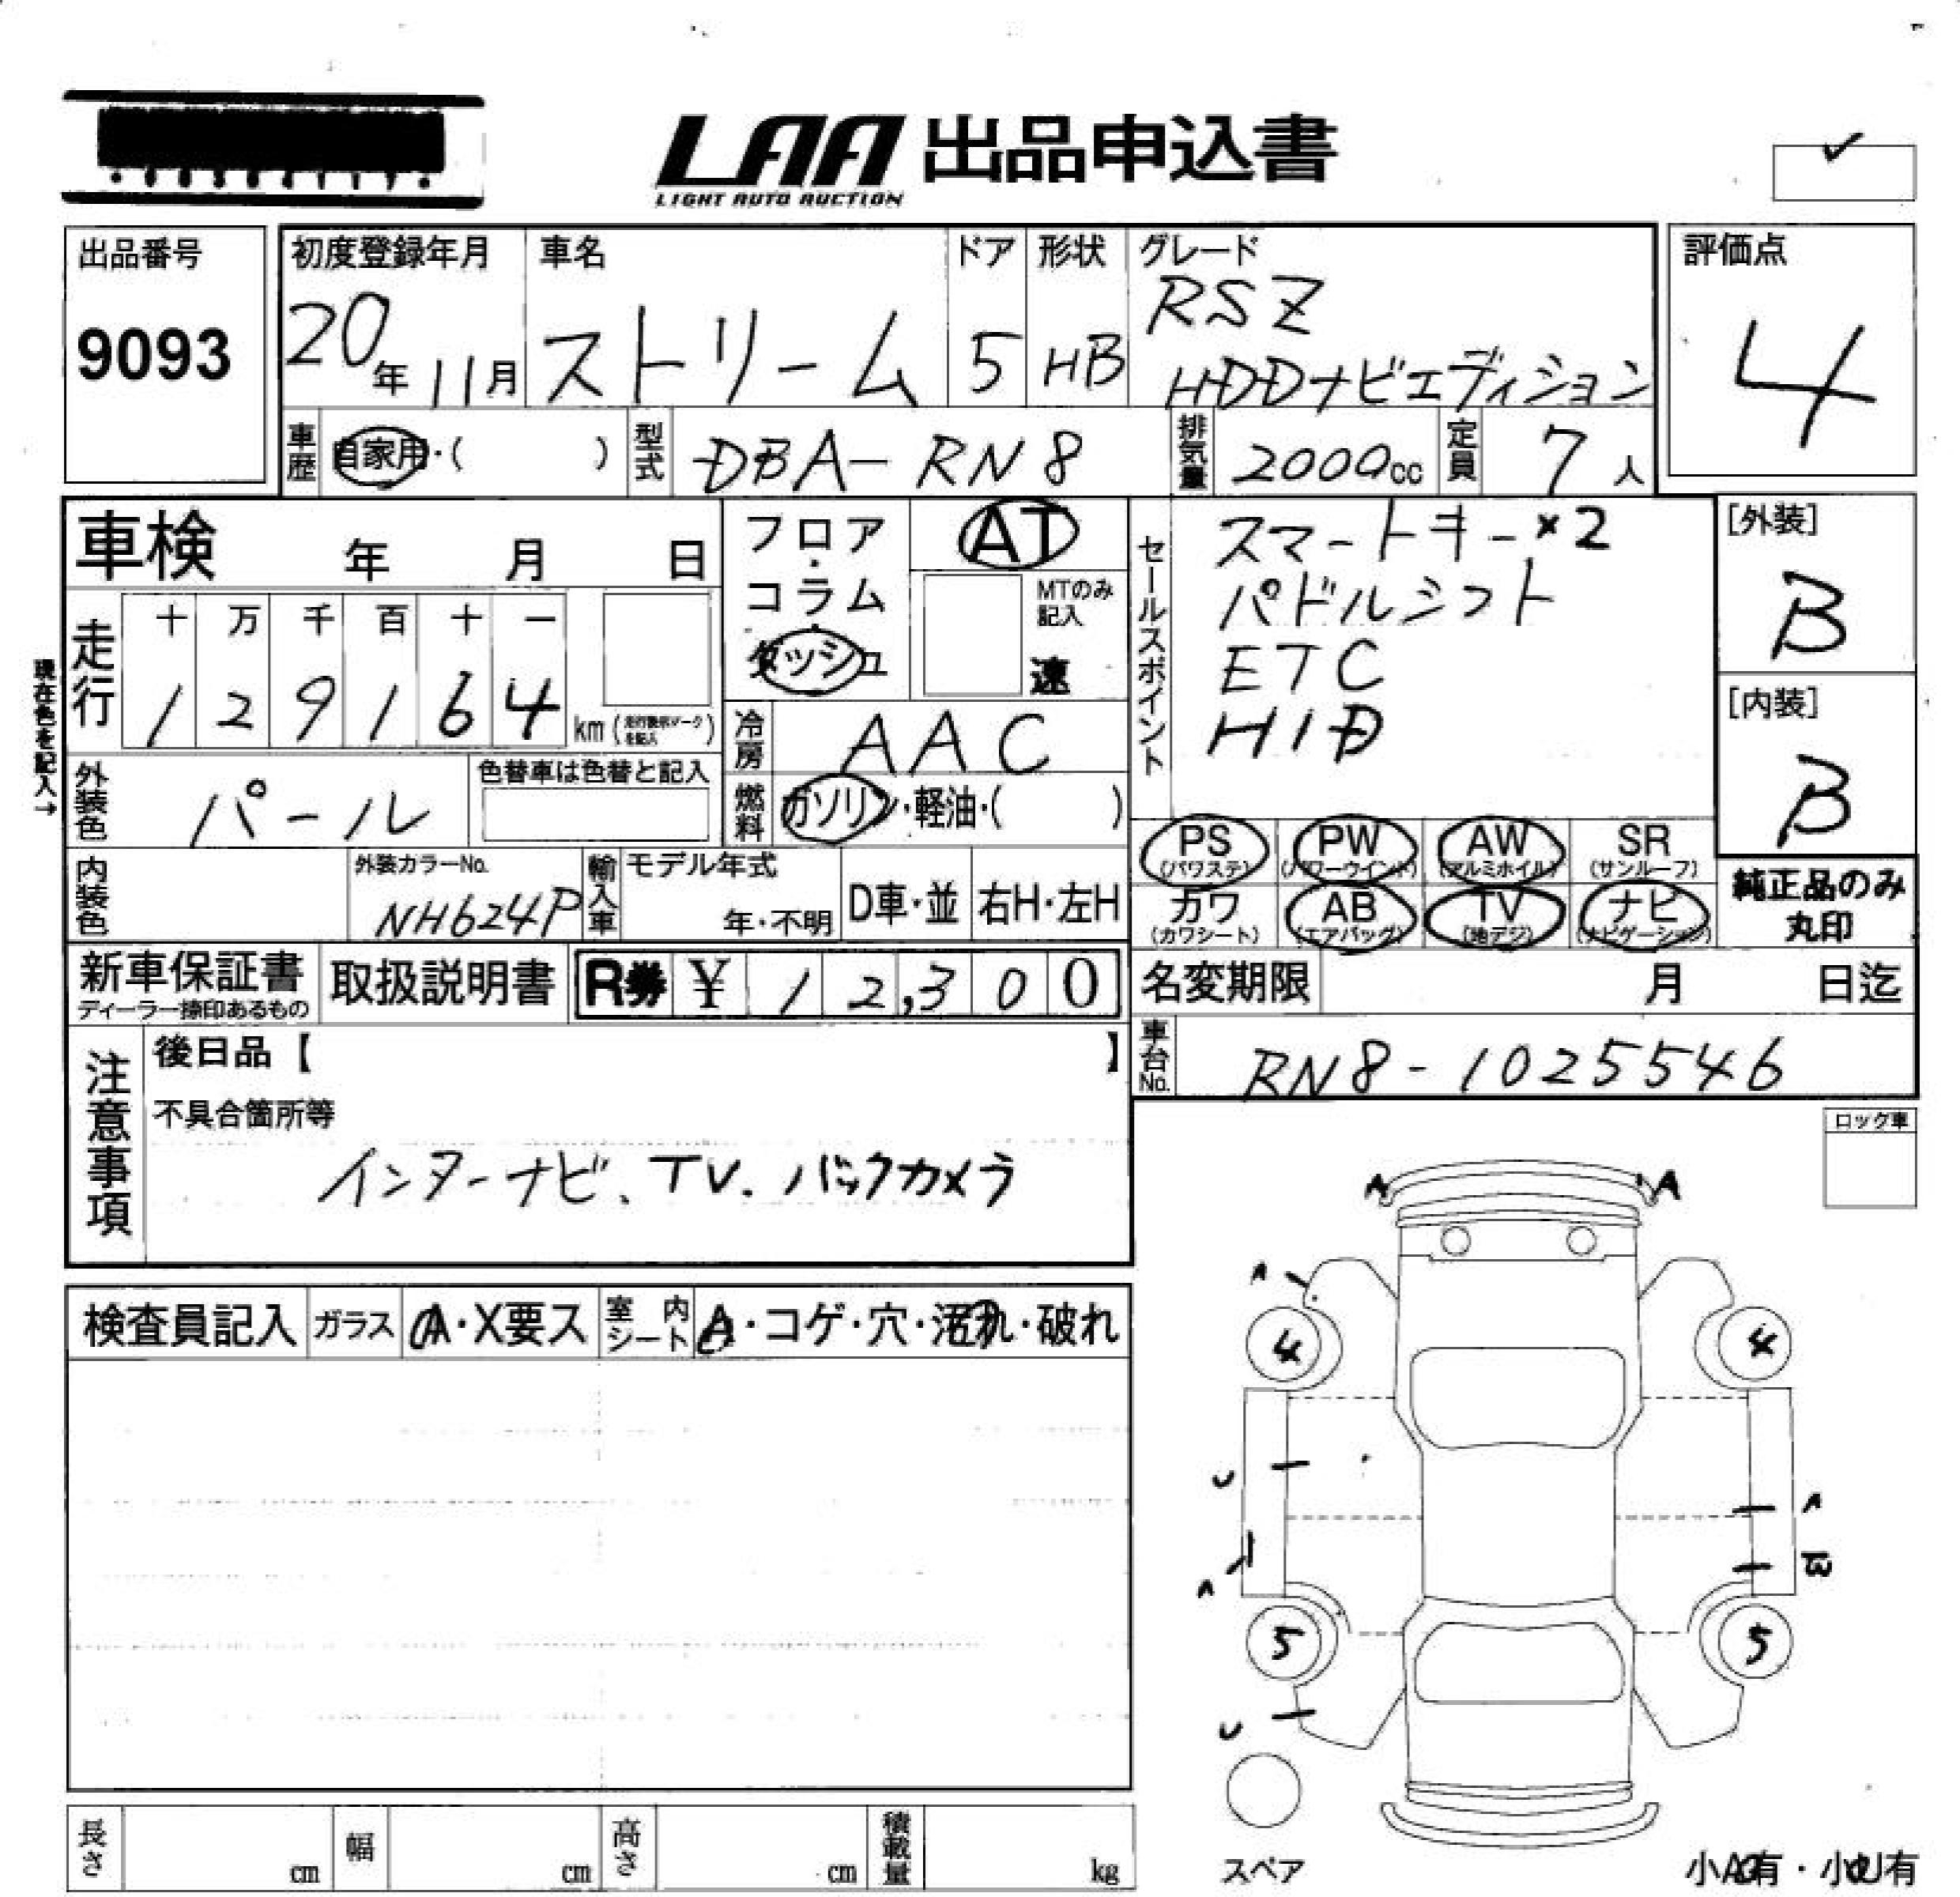 LAA 出品申込書
LIGHT AUTO AUCTION
出品番号
9093
初度登録年月
20年11月
車名
ストリーム
ドア
5
形状
HB
グレード
RSZ
HDDナビエディション
評価点
4
車歴
自家用・( )
型式
DBA-RN8
排気量
2000cc
定員
7人
車検 年 月 日
走行
十 万 千 百 十 一
1 2 9 1 6 4
km(走行換算マークを記入)
現在色を記入→
フロア・
コラム・
ダッシュ
AT
MTのみ
記入
速
冷房
AAC
燃料
ガソリン・軽油・( )
セールスポイント
スマートキー×2
パドルシフト
ETC
HID
[外装]
B
[内装]
B
外装色
パール
色替車は色替と記入
内装色
外装カラーNo.
NH624P
輸入車
モデル年式
年・不明
D車・並
右H・左H
PS
(パワステ)
PW
(パワーウインド)
AW
(アルミホイル)
SR
(サンルーフ)
カワ
(カワシート)
AB
(エアバッグ)
TV
(地デジ)
ナビ
(ナビゲーション)
純正品のみ
丸印
新車保証書
ディーラー捺印あるもの
取扱説明書
R券 ¥ 12,300
名変期限 月 日迄
車台No.
RN8-1025546
注意事項
後日品【 】
不具合箇所等
インターナビ、TV、バックカメラ
ロック車
検査員記入
ガラス
A・X要ス
室内シート
A・コゲ・穴・汚れ・破れ
A A
A
4 4
U
A
A
B
5 5
U
スペア
小A有・小U有
長さ cm
幅 cm
高さ cm
積載量 kg